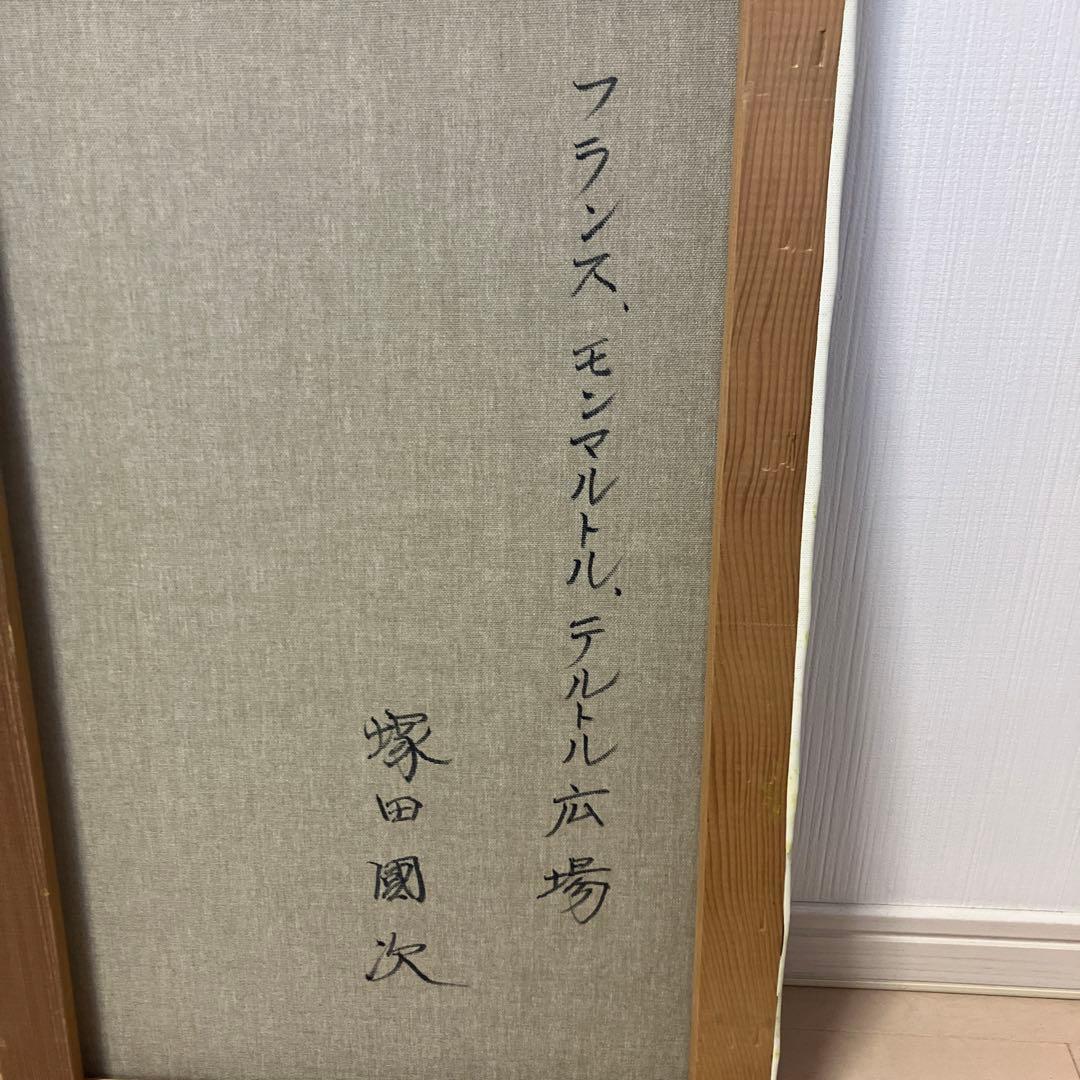 フランス、モンマルトル、テルトル広場
塚田國次